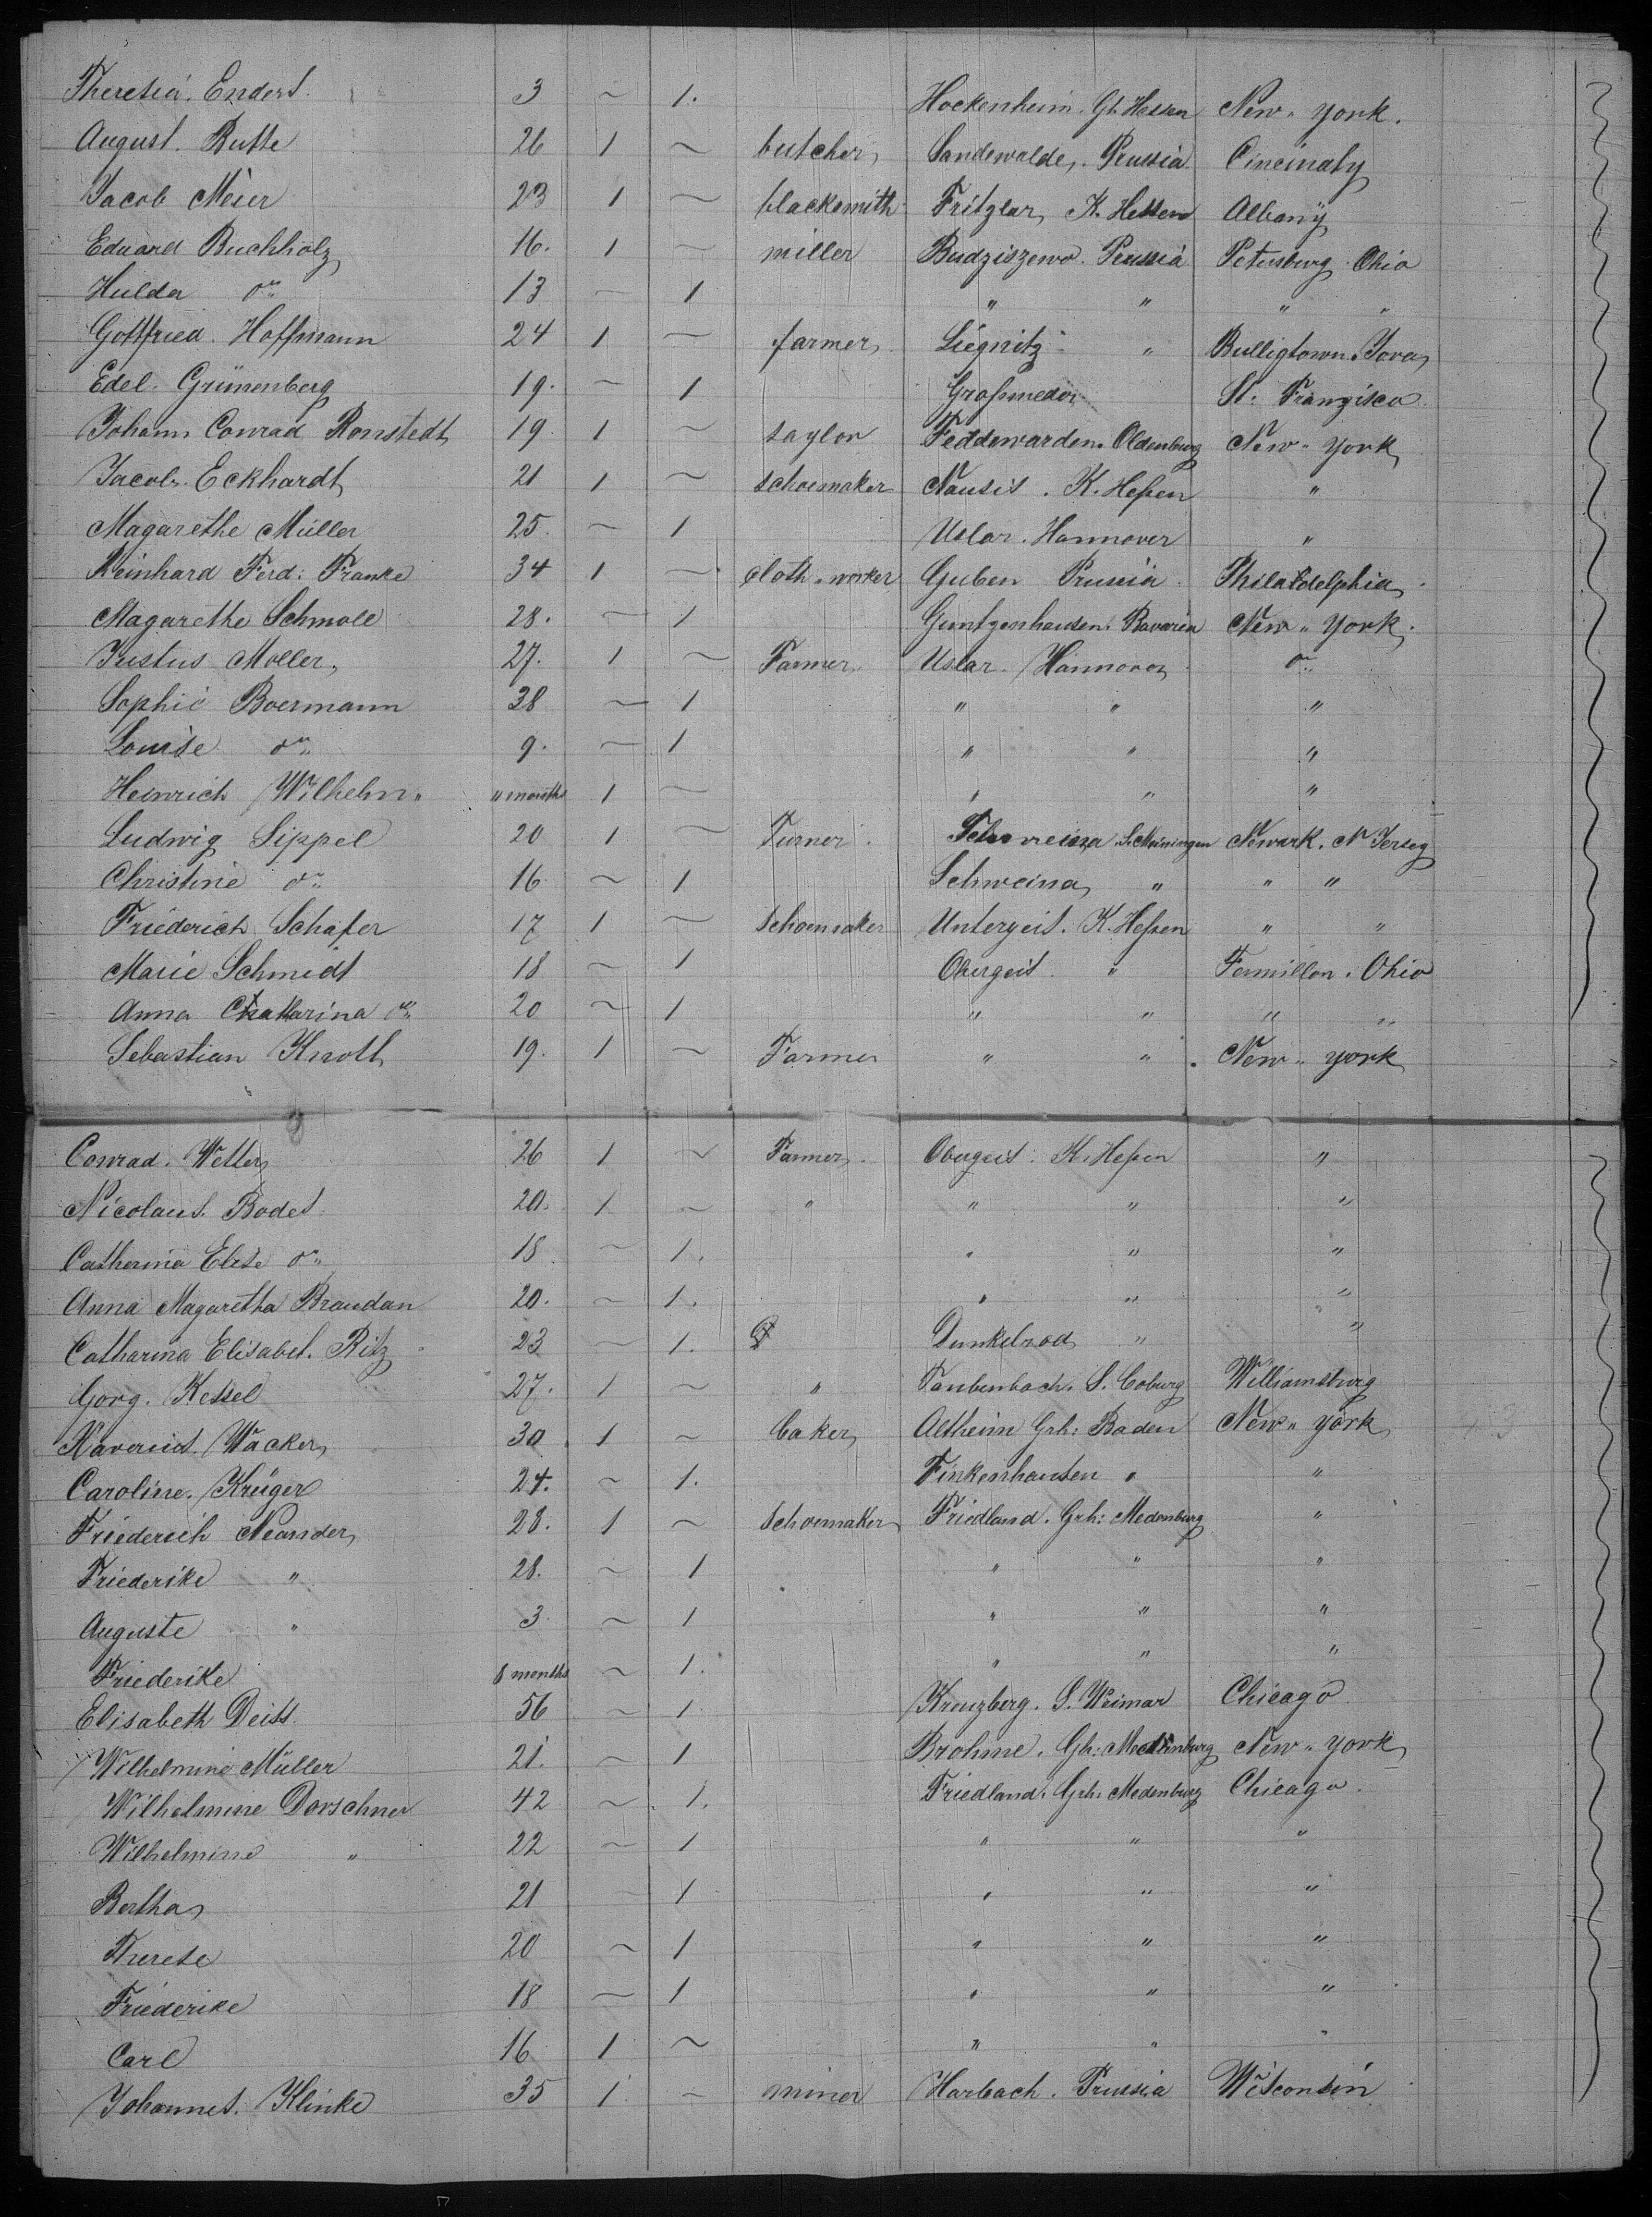 Theresia. Endert. 3 ~ 1. Hockenheim. Gh. Hessen New " York.
August. Butte 26 1 ~ butcher Sandewalde, Prussia Cincinaty
Jacob Meier 23 1 ~ blacksmith Fritzlar, K. Hessen Albany
Eduard Buchholz 16. 1 ~ miller Budziszewo. Prussia Petersburg. Ohio
Hulda do 13 ~ 1 " " " "
Gottfried. Hoffmann 24 1 ~ farmer Liegnitz " Bulligtown. Iova
Edel. Grünenberg 19. ~ 1 Großmedor St. Franzisco
Johann Conrad Ronstedt 19 1 ~ taylor Feddewarden. Oldenburg New " York
Jacob. Eckhardt 21 1 ~ schoemaker Nausis. K. Heßen "
Magarethe Müller 25. ~ 1 Uslar. Hannover "
Reinhard Ferd: Franke 34 1 ~ cloth " worker Guben Prussia Philadelphia
Magarethe Schmole 28. ~ 1 Guntzenhausen. Bavaria New " York.
Justus Moller, 27. 1 ~ Farmer Uslar. Hannover do
Sophie Boermann 38 ~ 1 " " "
Louise do 9. ~ 1 " " "
Heinrich Wilhelm " 11 months 1 ~ " " "
Ludwig Sippel 20 1 ~ Turner Schweina S. Meiningen Newark. N Jersey
Christine do 16 ~ 1 Schweina " " "
Friederich Schäfer 17 1 ~ schoemaker Untergeis. K. Heßen " "
Marie Schmidt 18 ~ 1 Obergeis. " Fermillon. Ohio
Anna Chatarina do 20 ~ 1 " " " "
Sebastian Knoth 19. 1 ~ Farmer " " New " York
Conrad. Wetter 26 1 ~ Farmer Obergeis. K. Heßen "
Nicolaus. Bodes 20. 1 ~ " " " "
Catharina Elise do 18 ~ 1. " " "
Anna Magaretha Braudan 20. ~ 1. " " "
Catharina Elisabet. Ritz 23 ~ 1. Dunkelrod " "
Gorg. Kessel 27. 1 ~ " Taubenbach. S. Coburg Williamsburg
Xaverius. Wacker 30 1 ~ baker Altheim Grh: Baden New " York
Caroline. Krüger 24. ~ 1. Finkenhausen " "
Friederich Neander 28. 1 ~ schoemaker Friedland. Grh: Medenburg "
Friederike " 28. ~ 1 " " "
Auguste " 3. ~ 1 " " "
Friederike 8 months ~ 1. " " "
Elisabeth Deiss. 56 ~ 1. Kreuzberg. S. Weimar Chicago.
Wilhelmine Müller 21. ~ 1 Brohme. Gh: Mecklenburg New " York
Wilhelmine Dorschner 42 ~ 1. Friedland. Grh. Medenburg Chicago.
Wilhelmine " 22 ~ 1 " " "
Bertha 21 ~ 1 " " "
Therese 20 ~ 1 " " "
Friederike 18 ~ 1 " " "
Carl 16 1 ~ " " "
Johannes. Klinke 35 1 ~ miner Harbach. Prussia Wisconsin